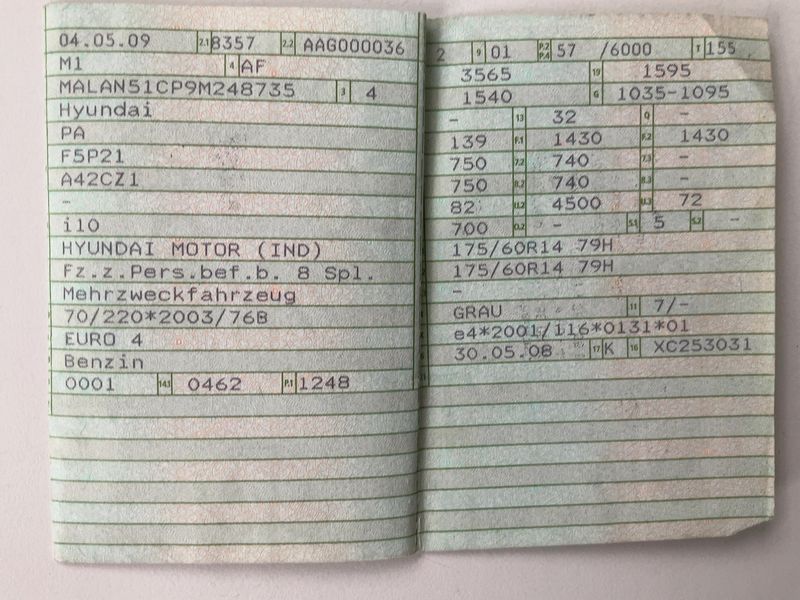 04.05.09 2.1 8357 2.2 AAG000036
M1 4 AF
MALAN51CP9M248735 3 4
Hyundai
PA
F5P21
A42CZ1
-
i10
HYUNDAI MOTOR (IND)
Fz.z.Pers.bef.b. 8 Spl.
Mehrzweckfahrzeug
70/220*2003/76B
EURO 4
Benzin
0001 14.1 0462 P.1 1248
2 9 01 P.2 P.4 57 /6000 T 155
3565 19 1595
1540 G 1035-1095
- 13 32 Q -
139 F.1 1430 F.2 1430
750 7.2 740 7.3 -
750 8.2 740 8.3 -
82 U.2 4500 U.3 72
700 O.2 - S.1 5 S.2 -
175/60R14 79H
175/60R14 79H
-
GRAU 11 7/-
e4*2001/116*0131*01
30.05.08 17 K 16 XC253031